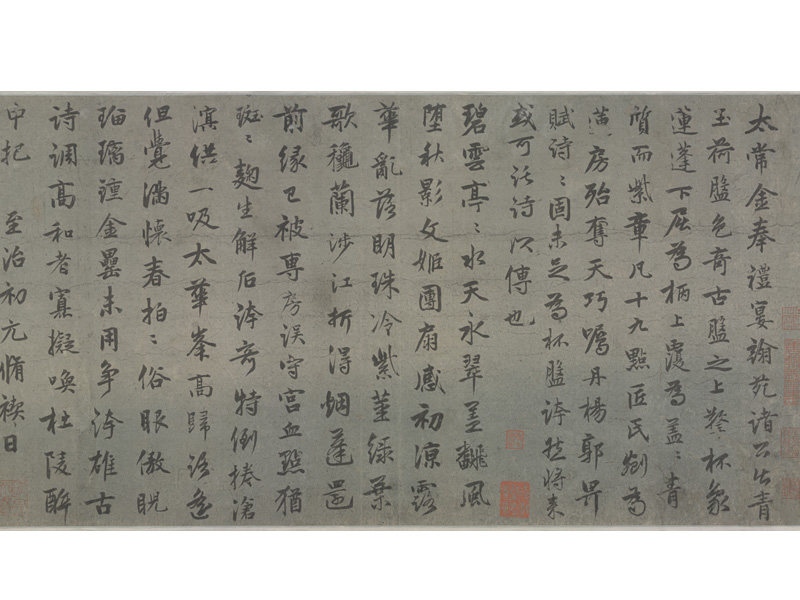 太常金奉禮宴翰苑諸公出青
玉荷盤色奇古盤之上琖杯象
蓮蓬下屈為柄上覆為蓋〻青
質而紫章凡十九點匠氏劉為
漢房殆奪天巧囑丹楊郭畀
賦詩〻固未足為杯盤誇然將來
或可託詩以傳也
碧雲亭〻水天永翠蓋翻風
墮秋影文姬團扇感初涼露
華亂落明珠冷紫莖綠葉
歌穠蘭涉江折得蜩蓬還
前緣已被專房誤守宮血點猶
斑〻麴生解后誇奇特倒捲滄
溟供一吸太華峯高歸路遙
但覺滿懷春拍〻俗眼傲睨
瑠璃鍾金罍未用爭誇雄古
詩調高和者寡擬喚杜陵醉
中把 至治初元脩禊日